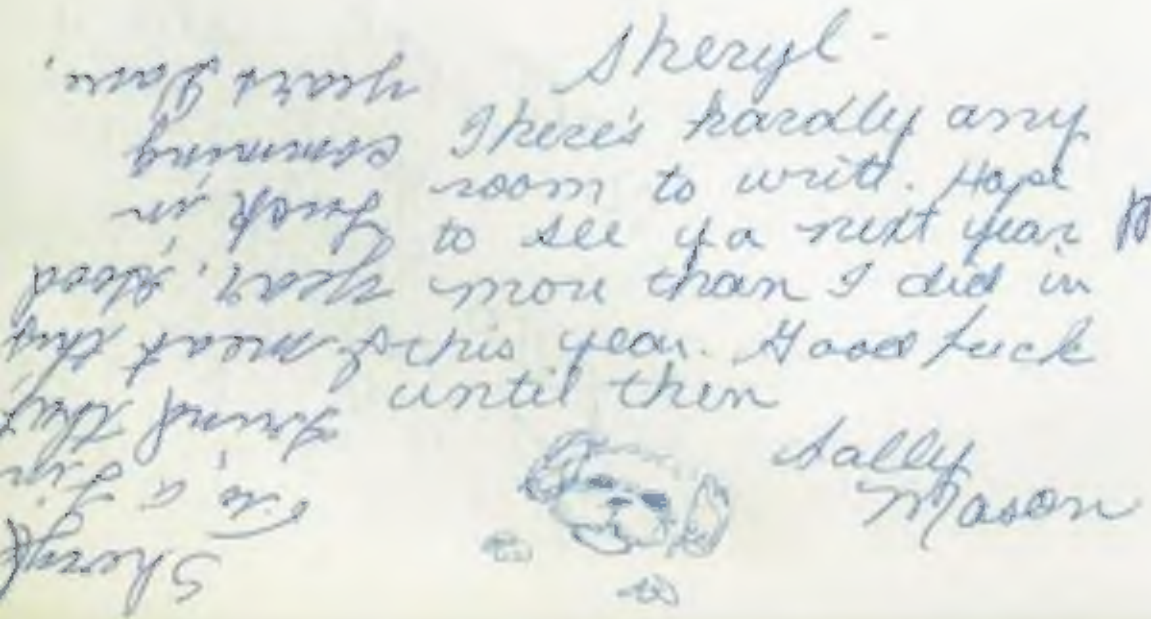 Sheryl-
There's hardly any
room to write. Hope
to see ya next year
more than I did in
this year. Good luck
until then
Sally
Mason
Sheryl
To a
year, Good
Luck in
comming
years